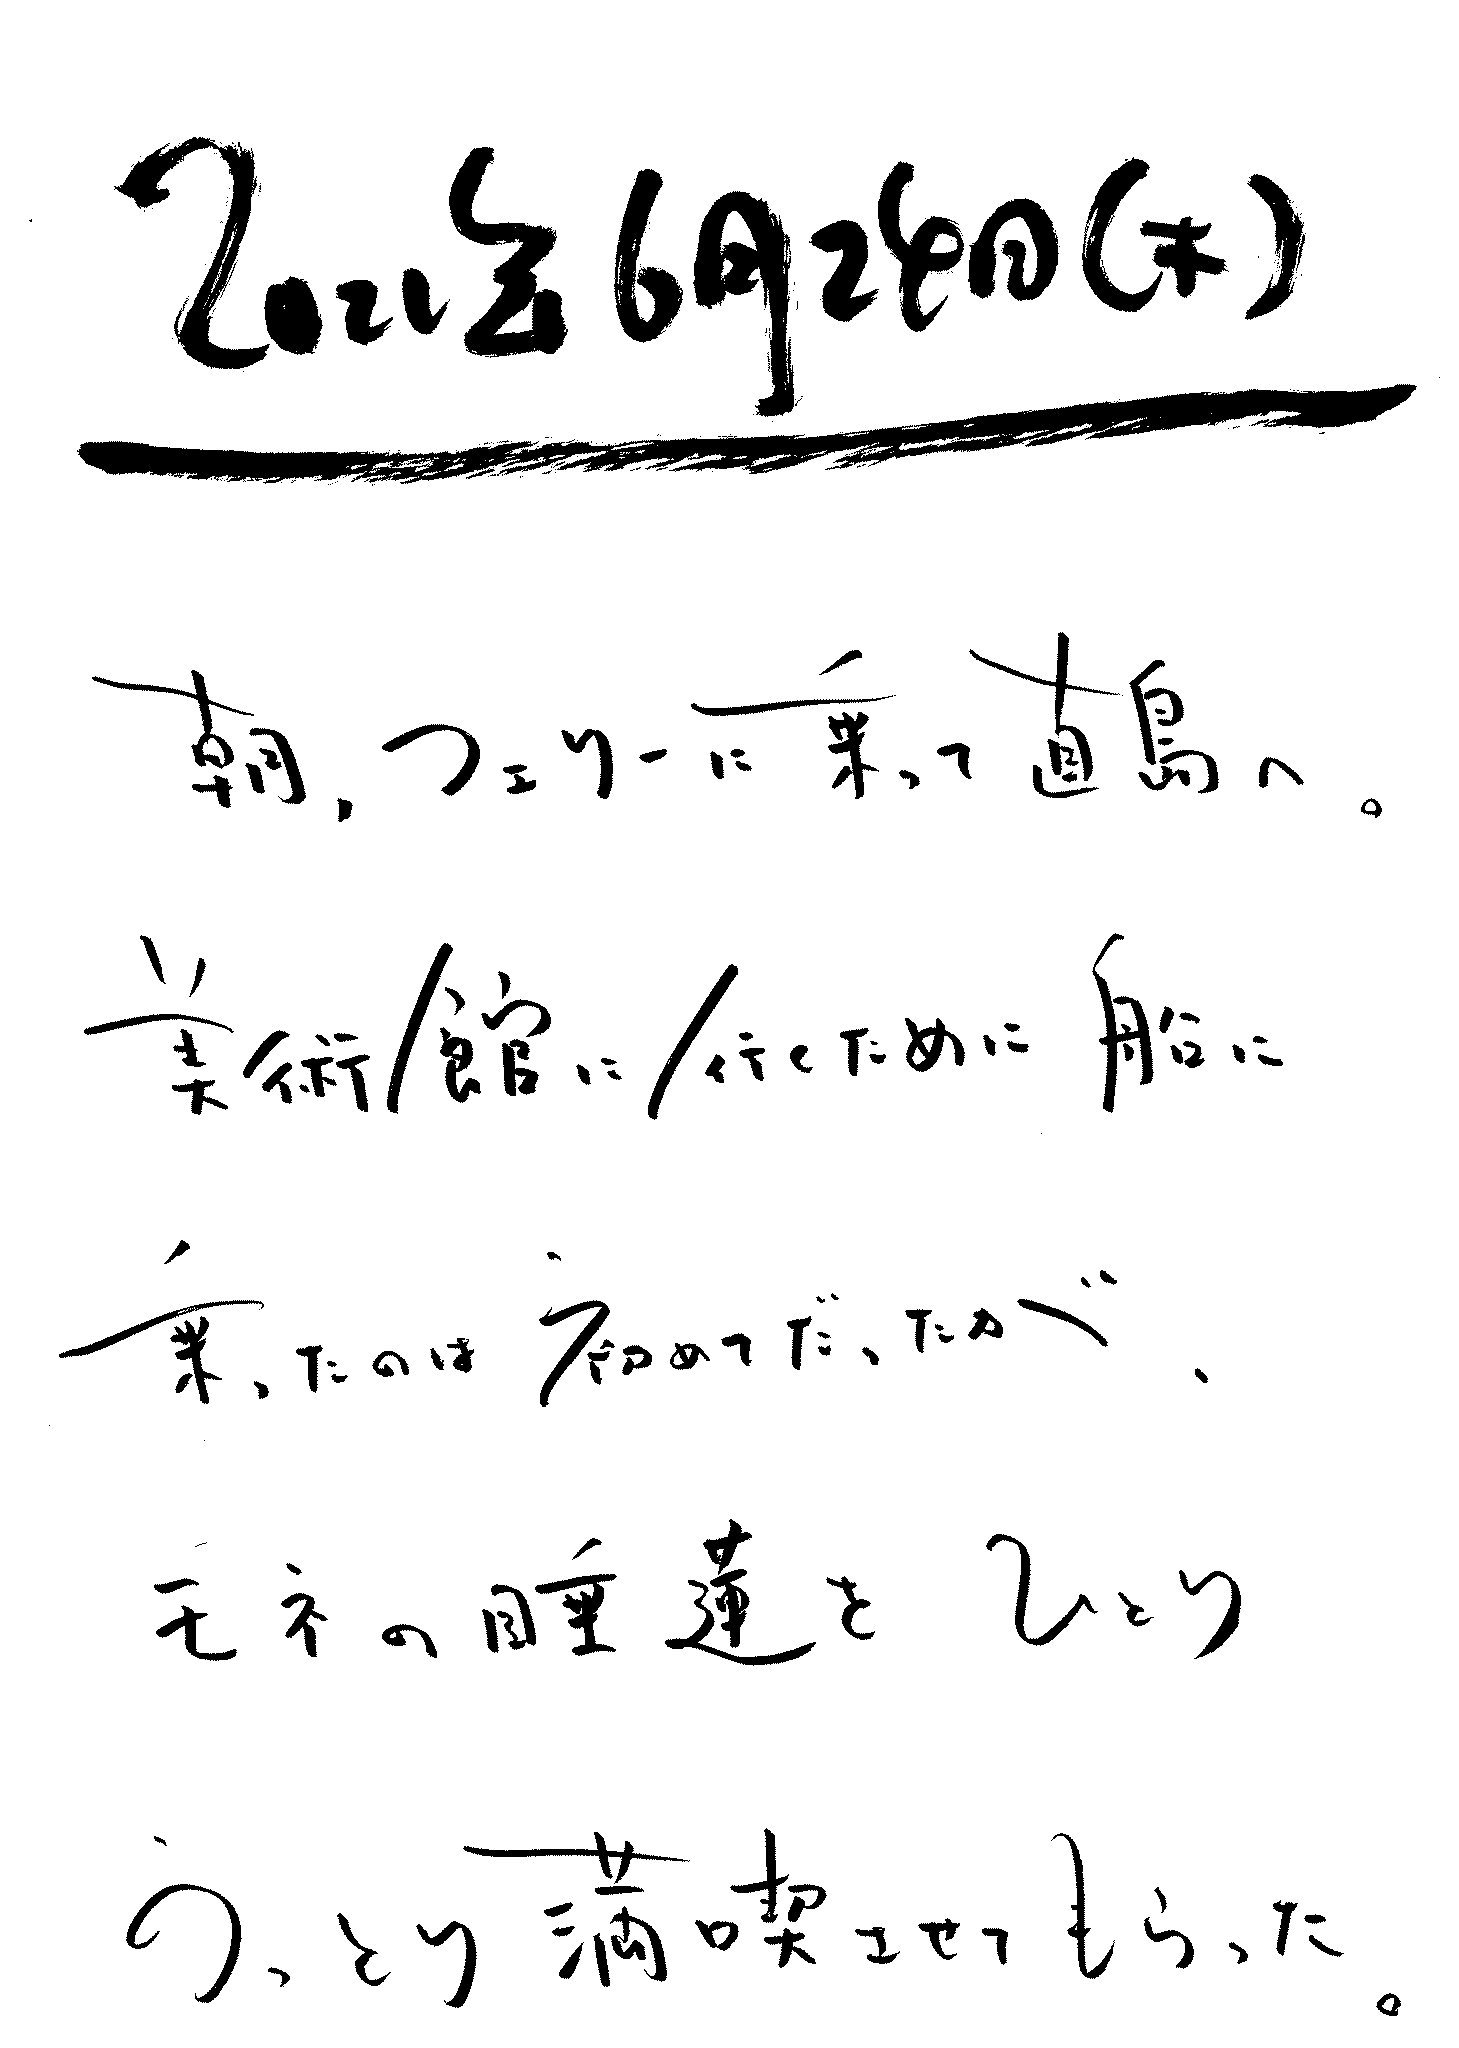 2021年6月24日(木)
朝、フェリーに乗って直島へ。
美術館に行くために船に
乗ったのは初めてだったが、
モネの睡蓮をひとり
うっとり満喫させてもらった。